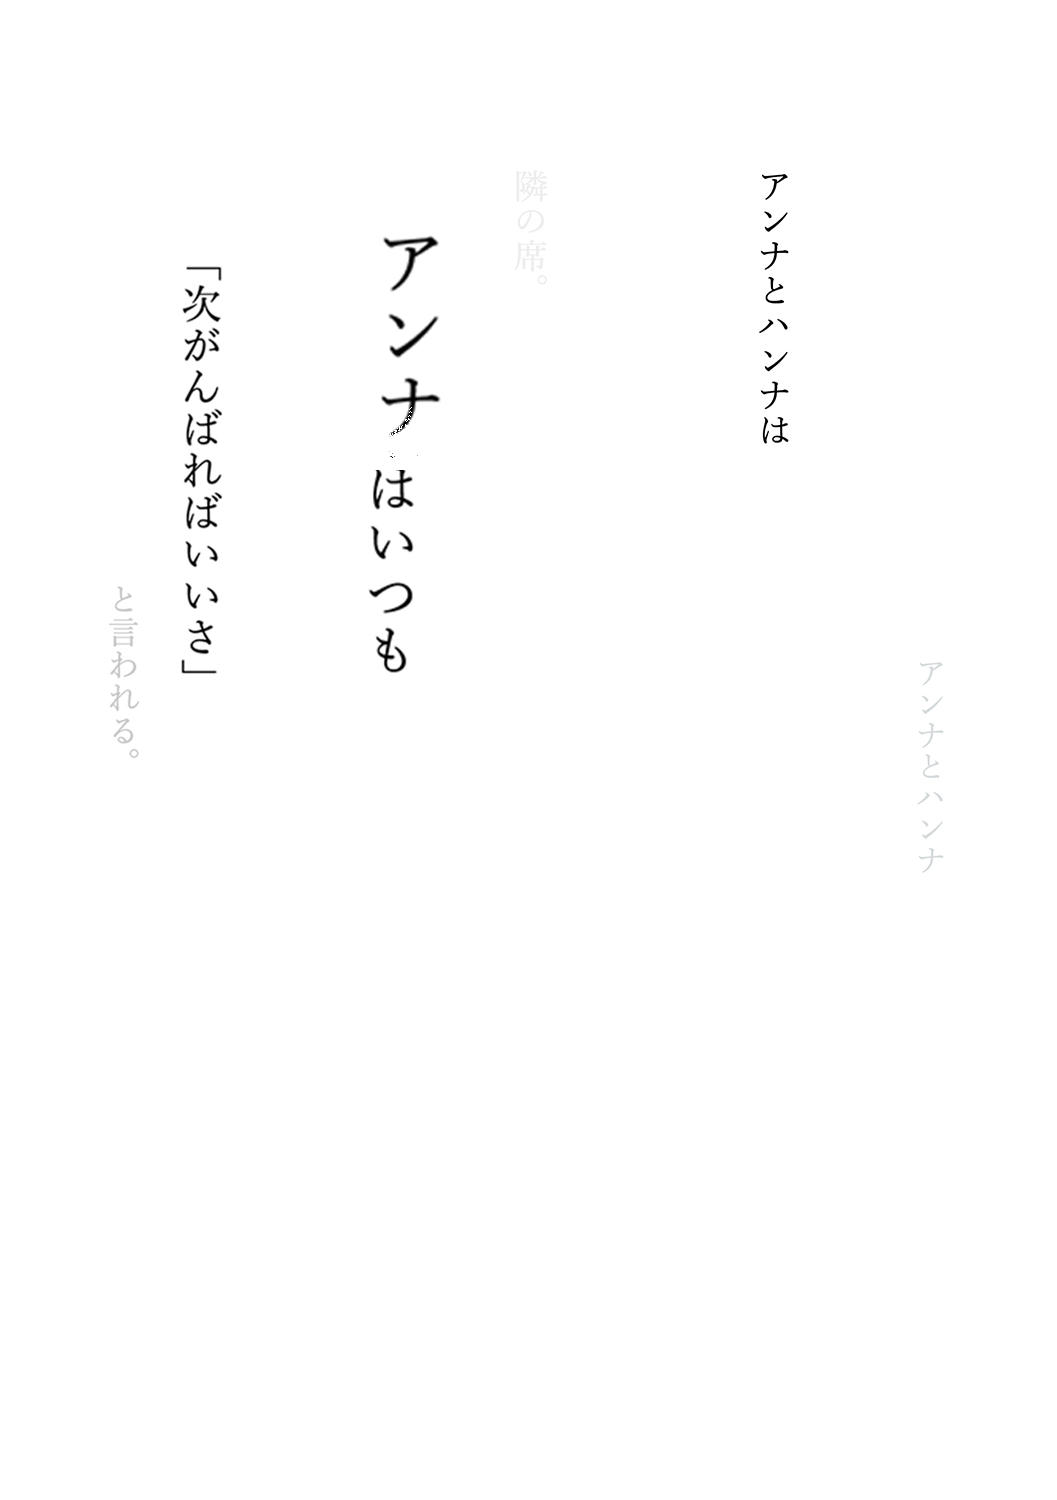 アンナとハンナ
アンナとハンナは
隣の席。
アンナはいつも
「次がんばればいいさ」
と言われる。